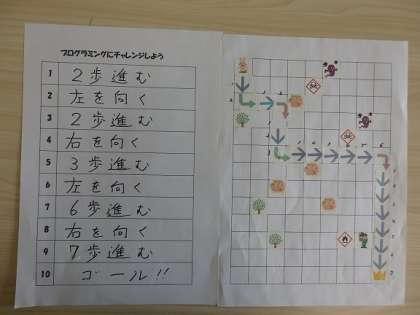 プログラミングにチャレンジしよう
1 2歩進む
2 左を向く
3 2歩進む
4 右を向く
5 3歩進む
6 左を向く
7 6歩進む
8 右を向く
9 7歩進む
10 ゴール!!